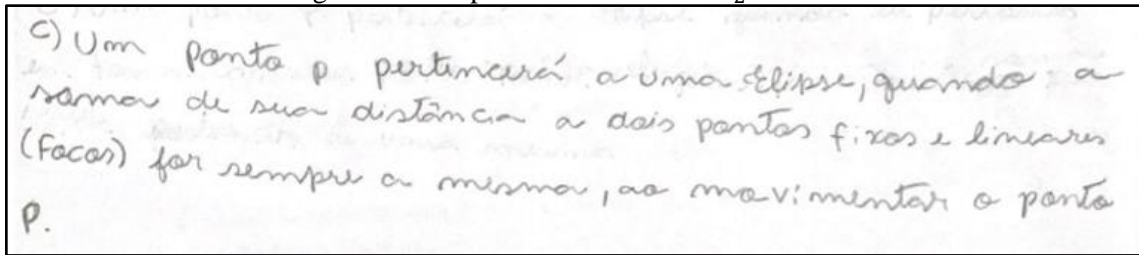 C) Um ponto p pertencerá a uma Elipse, quando a
soma de sua distância a dois pontos fixos e lineares
(Focos) for sempre a mesma, ao movimentar o ponto
P.